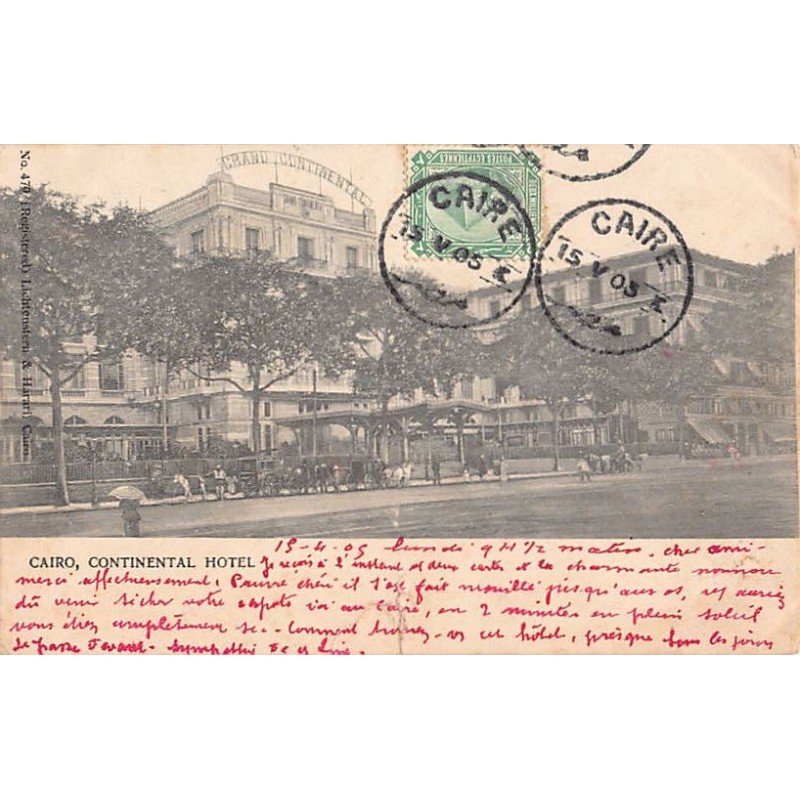 GRAND CONTINENTAL
No. 470 (Registered) Lichtenstern & Harari, Cairo
POSTES EGYPTIENNES
CAIRE
15 V 05
CAIRE
15 V 05
CAIRO, CONTINENTAL HOTEL
15-4-05 lundi 9 H ½ matin, cher ami-
Je reçois à l'instant et deux cartes et la charmante
merci affectueusement, Pauvre chéri il s'est fait mouillé jusqu'aux os, vs auriez
dû venir sécher votre capote ici au Caire, en 2 minutes en plein soleil
vous étiez complètement sec - Comment trouvez-vs cet hôtel, presque tous les jours
Je passe devant - sympathie